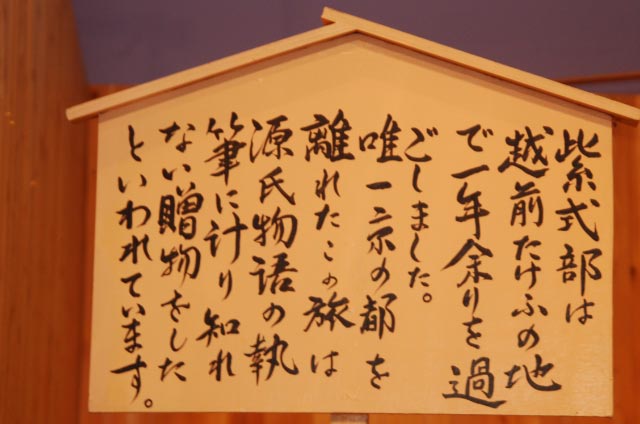 紫式部は
越前たけふの地
で一年余りを過
ごしました。
唯一京の都を
離れたこの旅は
源氏物語の執
筆に計り知れ
ない贈物をした
といわれています。